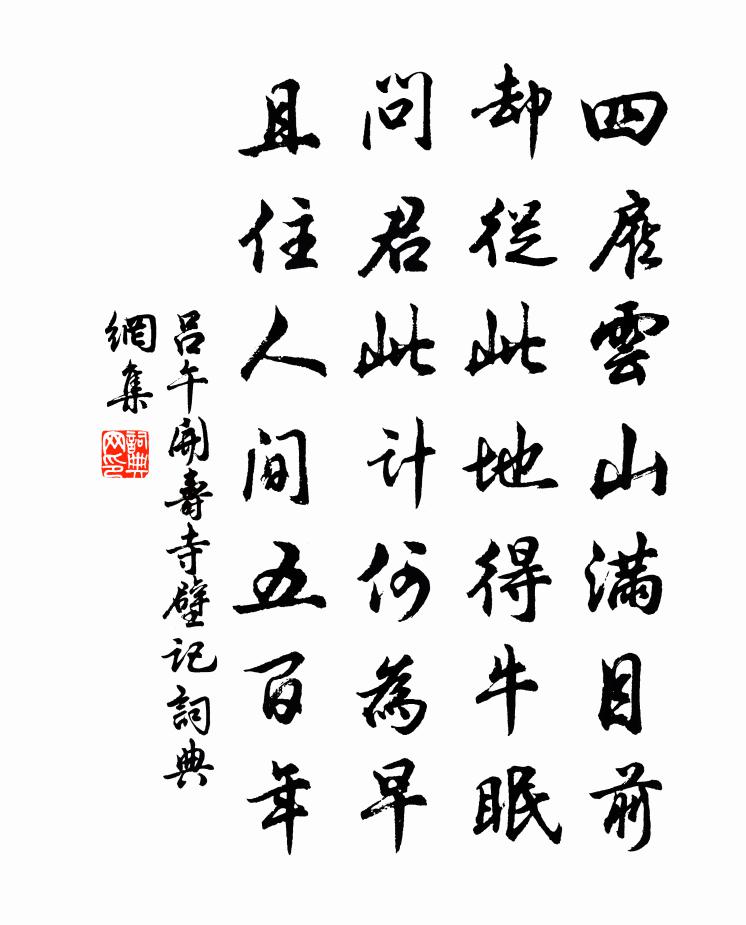 四㕔雲山滿目前
却從此地得牛眠
問君此計何為早
且住人间五百年
吕午開壽寺壁記詞典
網集
詞典網印